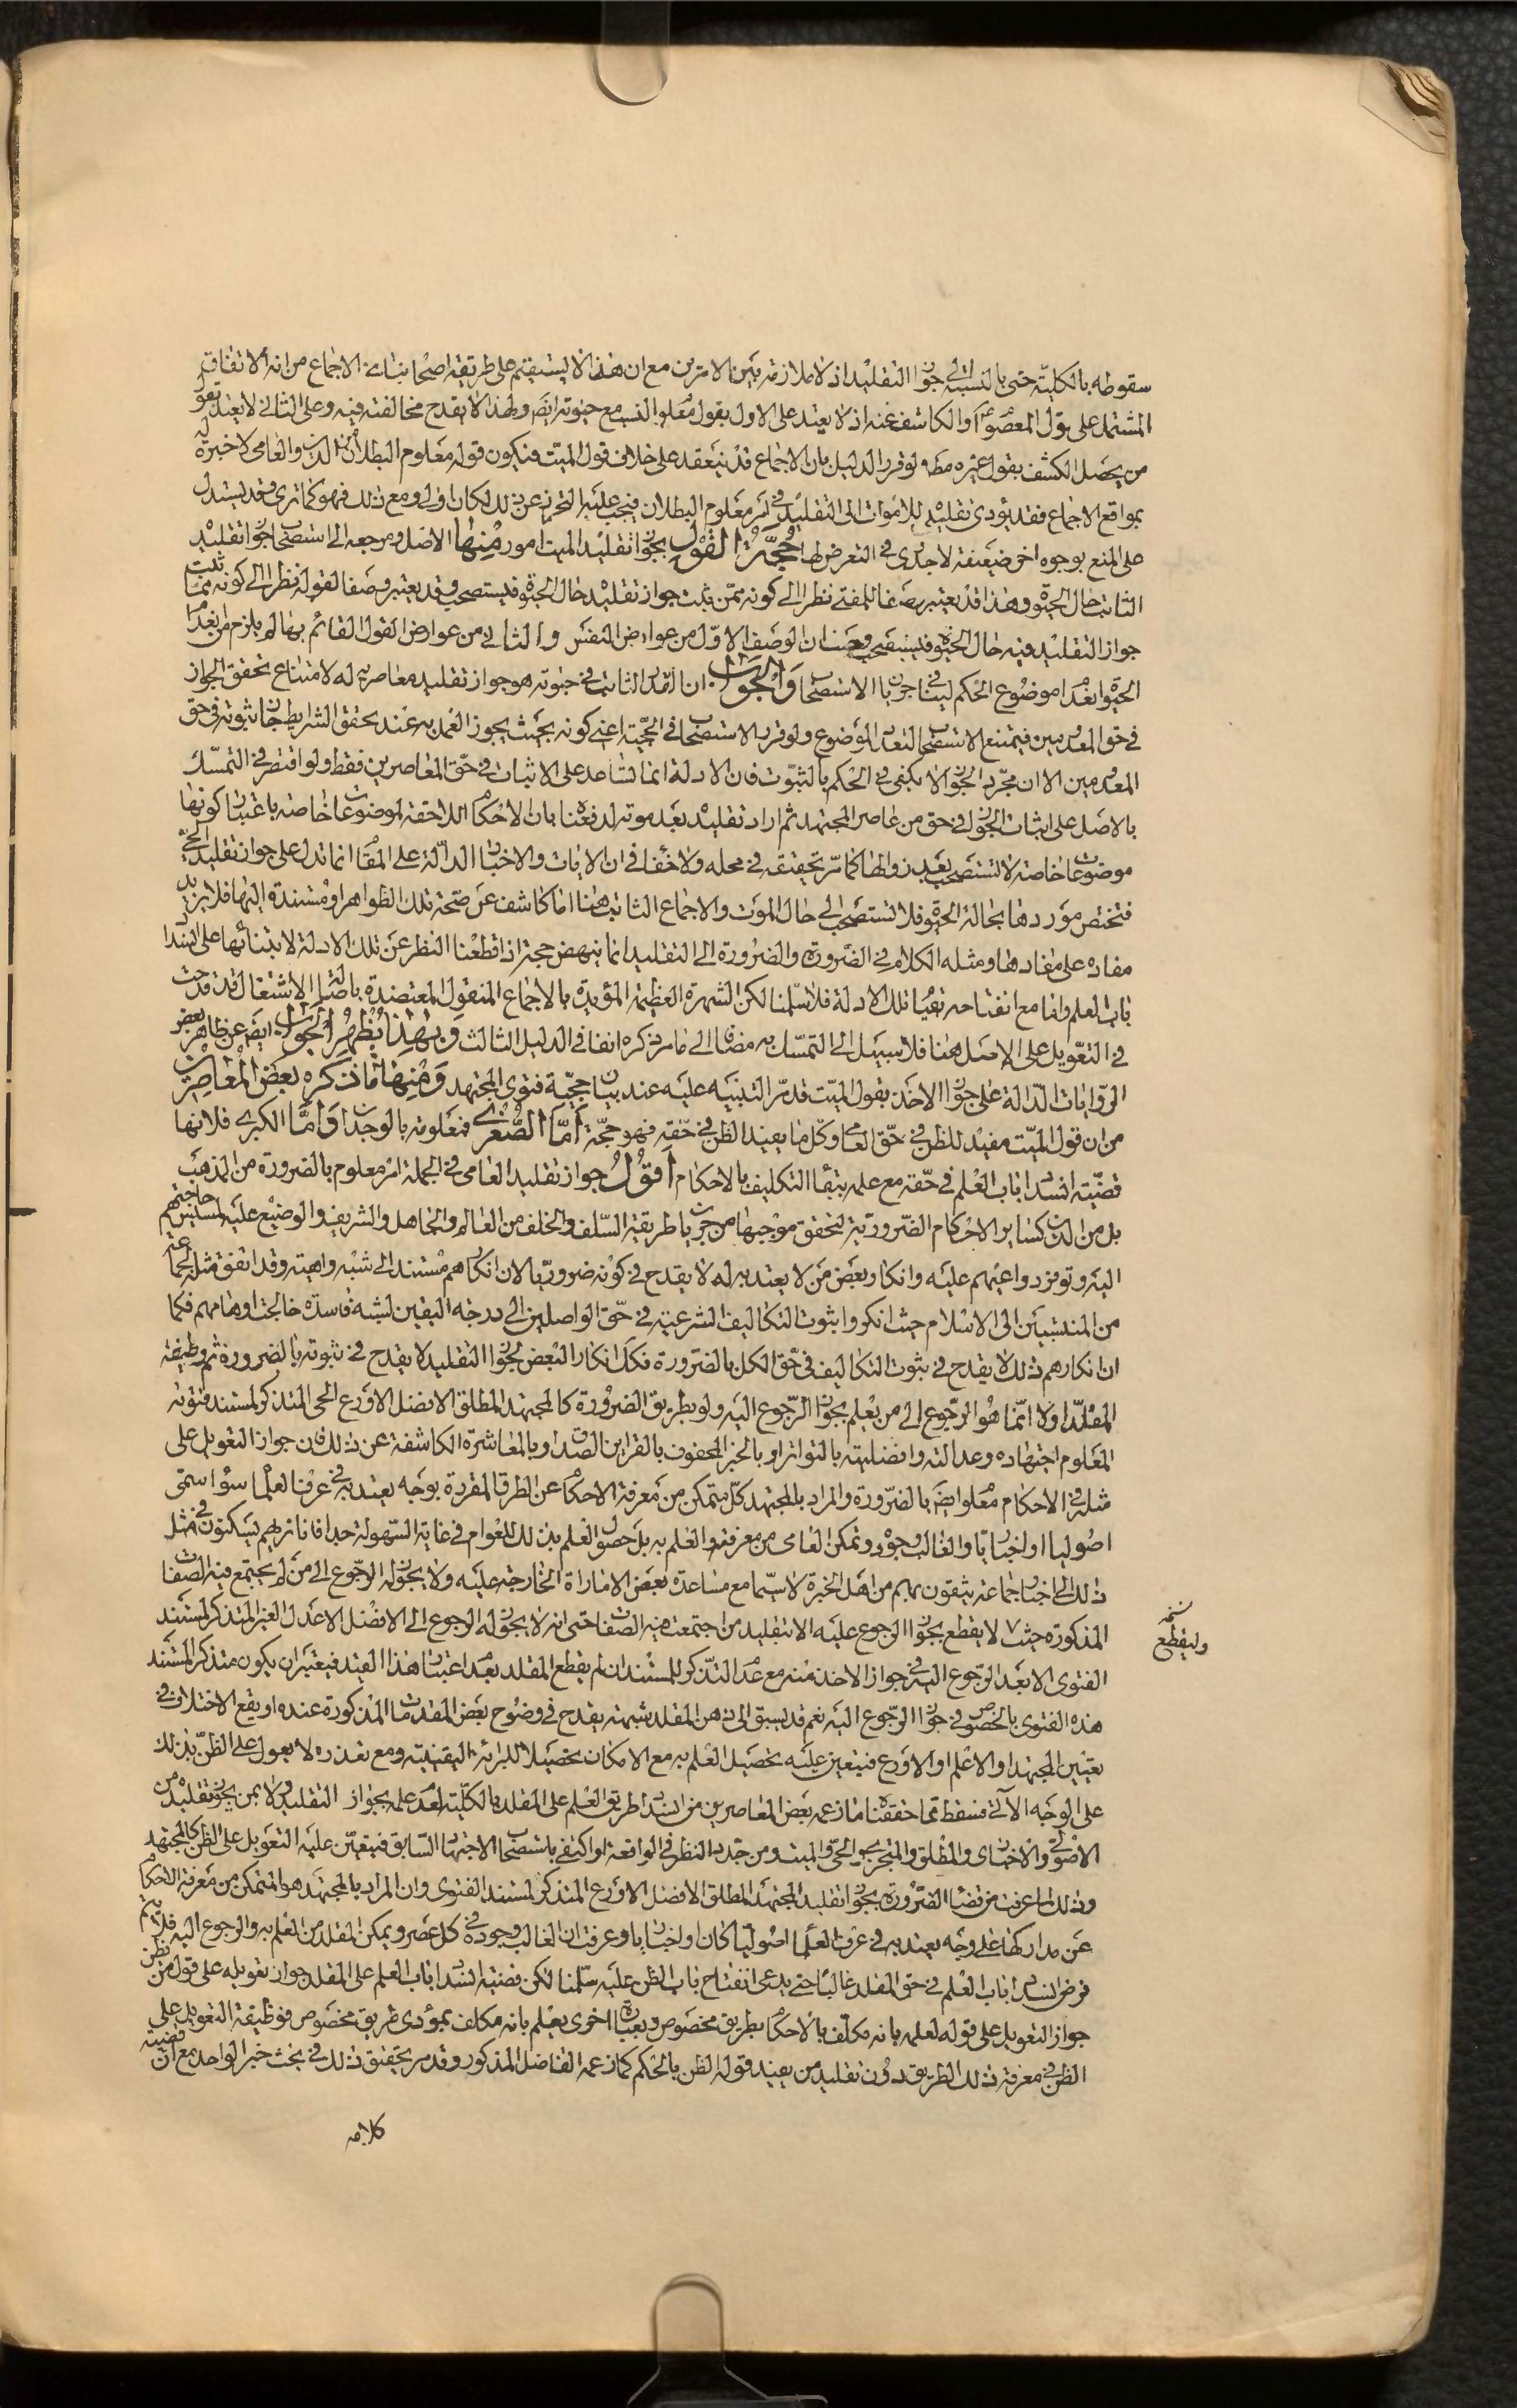 سقوطه بالكليّة حتى بالنسبة إلى جواز التقليد اذ لا ملازمة بين الامرين مع ان هذا لا يستقيم على طريقة اصحابنا في الاجماع من انه الاتفاق
المشتمل على قول المعصوم او الكاشف عنه اذ لا يعتد على الاول بقول معلوم النسب مع حيوته ايضا ولهذا لا يقدح مخالفته فيه وعلى الثاني لا يعتد بقول
من يحصل الكشف بقول غيره مطلقا ولو قرر الدليل بان الاجماع قد ينعقد على خلاف قول الميت فيكون قوله معلوم البطلان من الدين والعامي لا خبرة له
بمواقع الاجماع فقد يؤدى تقليده للاموات الى التقليد في امر معلوم البطلان فيجب عليه التحرز عن ذلك لكان اولى ومع ذلك فهو كما ترى وقد يستدل
على المنع بوجوه اخر ضعيفة لا جدوى في التعرض لها حجّة القول بجواز تقليد الميت امور منها الاصل ومرجعه الى استصحاب جواز تقليد
الثابت حال الحيوة وهذا قد يعتبر وصفا للمفتى نظرا الى كونه ممّن ثبت جواز تقليده حال الحيوة فيستصحب وقد يعتبر وصفا لقوله نظرا الى كونه ممّا ثبت
جواز التقليد فيه حال الحيوة فيستصحب وحيث ان الوصف الاوّل من عوارض النفس والثاني من عوارض القول القائم بها لم يلزم من بعد
الحيوة انعدام موضوع الحكم ليتنافى جريان الاستصحاب والجواب ان القدر الثابت في حيوته هو جواز تقليد معاصريه له لامتناع تحقق الجواز
في حق المعدومين فيمتنع الاستصحاب لتعدد الموضوع ولو قرر الاستصحاب في الحجّية اعنى كونه بحيث يجوز العمل به عند تحقق الشرايط جاز ثبوته في حق
المعدومين الا ان مجرّد الجواز لا يكفى في الحكم بالثبوت فان الادلة انما تساعد على الاثبات في حقّ المعاصرين فقط ولو اقتصر في التمسّك
بالاصل على اثبات الجواز في حق من عاصر المجتهد ثم اراد تقليده بعد موته لدفعناه بان الاحكام اللاحقة لموضوعات خاصة باعتبار كونها
موضوعات خاصة لا تستصحب بعد زوالها كما مرّ تحقيقه في محله ولا خفاء في ان الايات والاخبار الدالّة على المقام انما تدل على جواز تقليد الحىّ
فتختص موردها بحالة الحيوة فلا تستصحب الى حال الموت والاجماع الثابت هنا اما كاشف عن صحّة تلك الظواهر او مستندة اليها فلا يزيد
مفاده على مفادها ومثله الكلام في الضّرورة والضرورة الى التقليد انما ينهض حجة اذا قطعنا النظر عن تلك الادلة لابتنائها على انسداد
باب العلم واما مع انفتاحه بقيام تلك الادلة فلا سلّمنا لكن الشهرة العظيمة المؤيدة بالاجماع المنقول المعتضدة باصل الاشتغال قد قدحت
في التعويل على الاصل هنا فلا سبيل الى التمسّك به مضافا الى ما مر ذكره انفا في الدليل الثالث وبهذا يظهر الجواب ايضا عن ظاهر بعض
الرّوايات الدّالة على جواز الاخذ بقول الميّت قد مرّ التنبيه عليه عند بيان حجيّة فتوى المجتهد ومنها ما ذكره بعض المعاصرين
من ان قول الميّت مفيد للظن في حقّ العامى وكلّ ما يفيد الظن في حقّه فهو حجّة امّا الصغرى فمعلومة بالوجدان وامّا الكبرى فلانها
قضيّة انسداد باب العلم في حقّه مع علمه ببقاء التكليف بالاحكام اقول جواز تقليد العامى في الجملة امر معلوم بالضرورة من المذهب
بل من الدين كساير الاحكام الضّروريّة لتحقق موجبها من جريان طريقة السّلف والخلف من العالم والجاهل والشريف والوضيع عليه لمسيس حاجتهم
اليه وتوفر دواعيهم عليه وانكار بعض من لا يعتد به له لا يقدح في كونه ضروريّا لان انكارهم مستند الى شبه واهية وقد اتفق مثله لجماعة
من المنتسبين الى الاسلام حيث انكروا ثبوت التكاليف الشرعية في حقّ الواصلين الى درجة اليقين لشبه فاسدة خالجت اوهامهم فكما
ان انكارهم ذلك لا يقدح في ثبوت التكاليف في حقّ الكل بالضّرورة فكذا انكار البعض لجواز التقليد لا يقدح في ثبوته بالضرورة ثم وظيفة
المقلّد اولا انّما هو الرّجوع الى من يعلم بجواز الرّجوع اليه ولو بطريق الضرورة كالمجتهد المطلق الافضل الاورع الحى المتذكر لمستند فتوته
المعلوم اجتهاده وعدالته وافضليته بالتواتر او بالخبر المحفوف بالقراين الصدق او بالمعاشرة الكاشفة عن ذلك فان جواز التعويل على
مثله في الاحكام معلوم ايضا بالضّرورة والمراد بالمجتهد كلّ متمكن من معرفة الاحكام عن الطرق المقررة بوجه يعتد به في عرف العلماء سواء سمّى
اصوليا او اخباريّا والغالب وجوده وتمكن العامى من معرفته والعلم به بل حصول العلم بذلك للعوام في غاية السّهولة جدا فانا نريهم يسكنون في مثل
ذلك الى اخبار جماعة يثقون بهم من اهل الخبرة لا سيّما مع مساعدة بعض الامارات الخارجة عليه ولا يجوز له الرّجوع الى من لم يجتمع فيه الصفات
المذكورة حيث لا يقطع بجواز الرجوع عليه الا بتقليد من اجتمعت فيه الصفات حتى انه لا يجوز له الرجوع الى الافضل الاعدل الغير المتذكر لمستند
الفتوى الا بعد الرّجوع اليه في جواز الاخذ منه مع عدم التذكر للمستند ان لم يقطع المقلد بعدم اعتبار هذا القيد فيعتبر ان يكون متذكر المستند
هذه الفتوى بالخصوص في جواز الرّجوع اليه نعم قد يسبق الى ذهن المقلد شبهة يقدح في وضوح بعض المقدمات المذكورة عنده او يقع الاختلاف في
تعيين المجتهد او الاعلم او الاورع فيتعين عليه تحصيل العلم به مع الامكان تحصيلا للبرائة اليقينية ومع تعذره لا يعول على الظنّ بذلك
على الوجه الآتى فسقط بما حققناه ما زعمه بعض المعاصرين من انسداد طريق العلم على المقلد بالكليّة لعدم علمه بجواز التقليد ولا بمن يجوز تقليده من
الاصولى والاخبارى والمطلق والمتجزى والحىّ والميت ومن جدّد النظر في الواقعة او اكتفى باستصحاب الاجتهاد السّابق فيتعيّن عليه التعويل على الظن كالمجتهد
وذلك لما عرفت من قضاء الضّرورة بجواز تقليد المجتهد المطلق الافضل الاورع المتذكر لمستند الفتوى وان المراد بالمجتهد هو المتمكن من معرفة الاحكام
عن مداركها على وجه يعتد به في عرف العلماء اصوليّا كان او اخباريا وعرفت ان الغالب وجوده في كل عصر ويمكن المقلد من العلم به والرجوع اليه فلا يتم
فرض انسداد باب العلم في حق المقلد غالبا حتى يدعى انفتاح باب الظن عليه سلّمنا لكن قضية انسداد باب العلم على المقلد جواز تعويله على قول من يظن
جواز التعويل على قوله لعلمه بانه مكلّف بالاحكام بطريق مخصوص وبعبارة اخرى يعلم بانه مكلف بمؤدى طريق مخصوص فوظيفة التعويل على
الظن في معرفة ذلك الطريق دون تقليد من يفيد قوله الظن بالحكم كما زعمه الفاضل المذكور وقد مر تحقيق ذلك في بحث خبر الواحد مع ان قضية
كلامه
نسخه
وليقطع